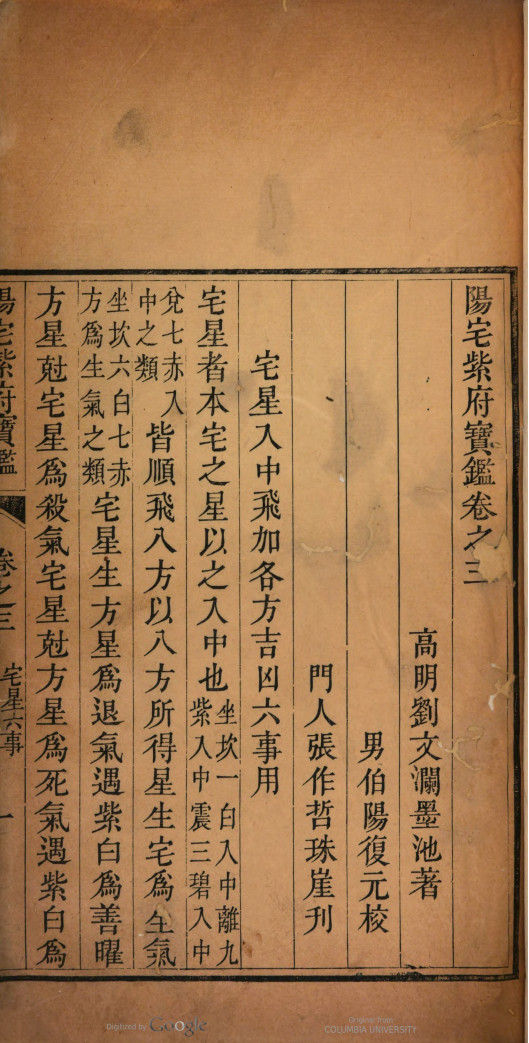 陽宅紫府寶鑑卷之三
高明劉文瀾墨池著
男伯陽復元校
門人張作哲珠崖刋
宅星入中飛加各方吉凶六事用
宅星者本宅之星以之入中也坐坎一白入中離九紫入中震三碧入中
兌七赤入中之類皆順飛八方以八方所得星生宅爲生氣
坐坎六白七赤方爲生氣之類宅星生方星爲退氣遇紫白爲善曜
方星尅宅星爲殺氣宅星尅方星爲死氣遇紫白爲
陽宅紫府寶鑑 卷之三 宅星六事 一
Digitized by Google
Original from
COLUMBIA UNIVERSITY